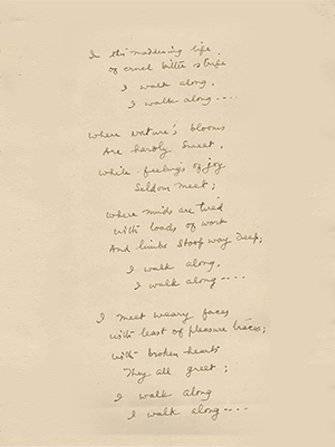 In this maddening life
of cruel bitter strife
I walk along.
I walk along....
where nature's blooms
Are hardly sweet.
while feelings of joy
Seldom meet;
where minds are tired
with loads of work
And limbs stoop way deep;
I walk along.
I walk along....
I meet weary faces
with least of pleasure traces;
with broken hearts
They all greet;
I walk along
I walk along....